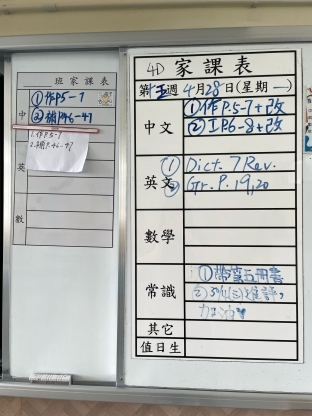 班家課表
中
①作P.5-7
②補P.46-47
1.作P.5-7
2.補P.46-47
英
數
4D 家課表
週 4月28日(星期一)
中文
①作P.5-7+改
②工P.6-8+改
英文
① Dict. 7 Rev.
② Gr. P. 19, 20
數學
常識
①帶第五冊書
加油
其它
值日生